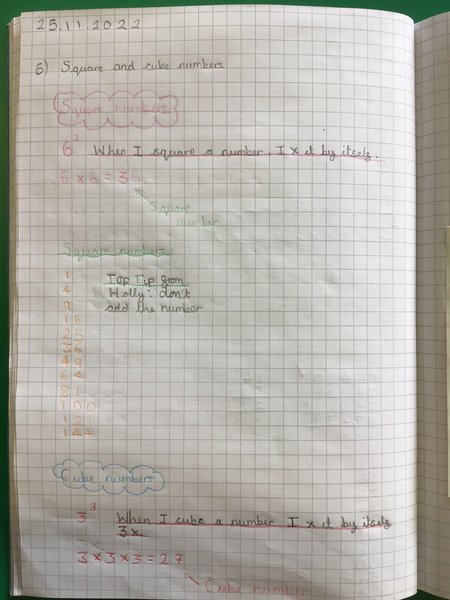 25.11.2022
6) Square and cube numbers
Square numbers
6² When I square a number, I x it by itself.
6 x 6 = 36
Square
number
Square numbers:
1
4
9
16
25
36
49
64
81
100
121
144
Top Tip from
Holly: don't
add the number
Cube numbers
3³ When I cube a number I x it by itself
3x.
3 x 3 x 3 = 27
Cube number